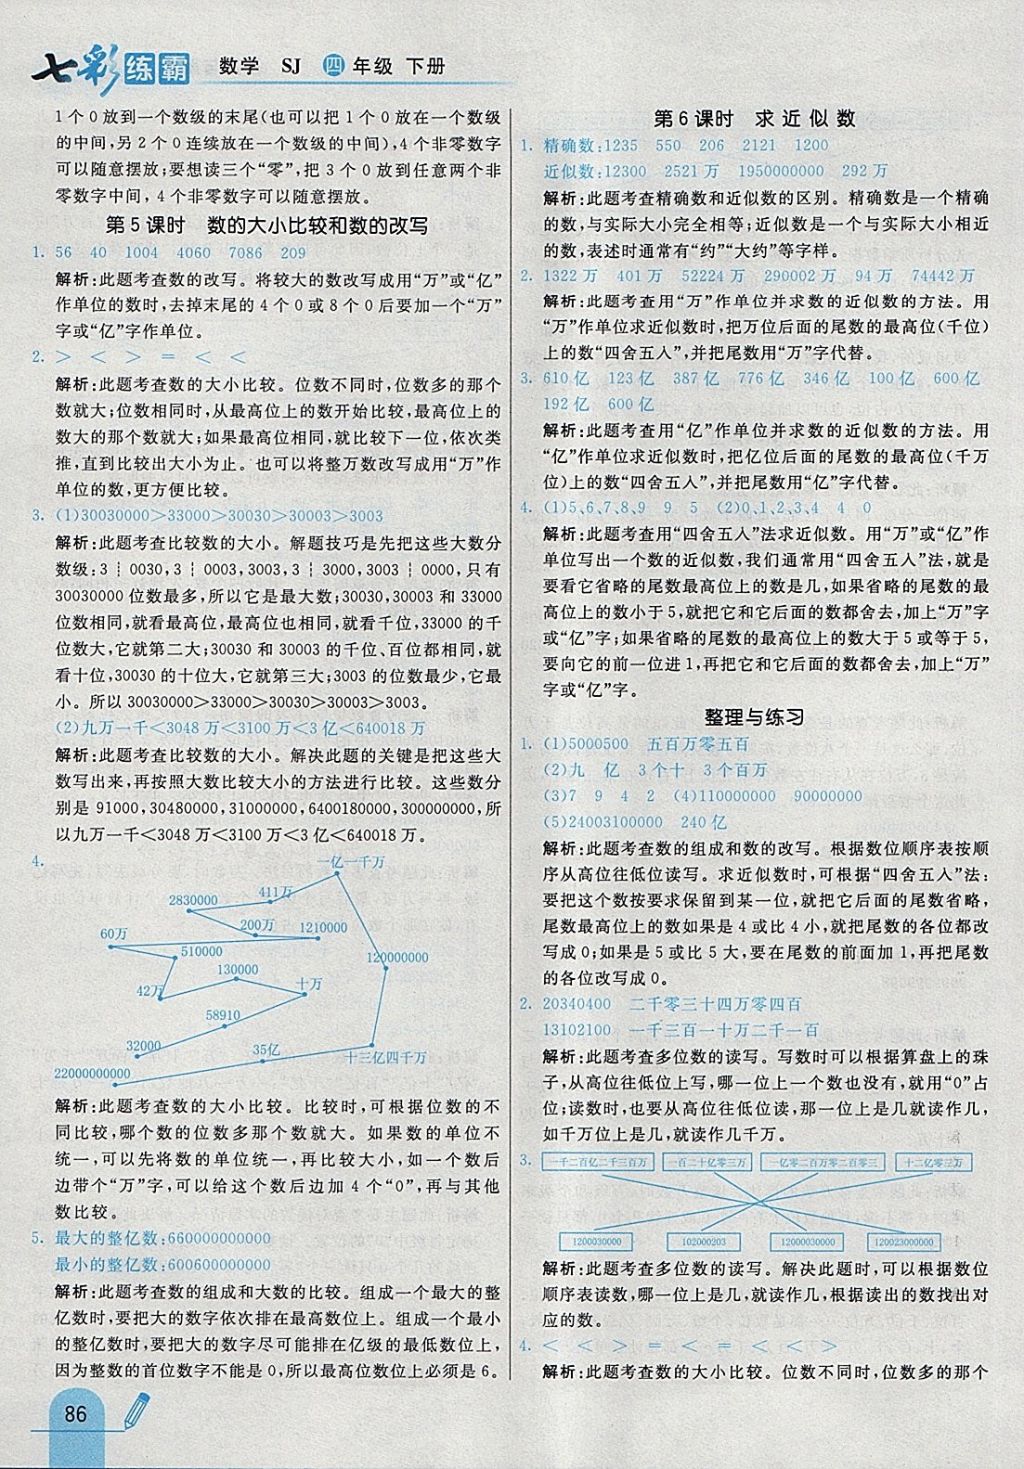 七彩练霸 数学 SJ 四年级 下册
1个0放到一个数级的末尾(也可以把1个0放在一个数级
的中间,另2个0连续放在一个数级的中间),4个非零数字
可以随意摆放;要想读三个“零”,把3个0放到任意两个非
零数字中间,4个非零数字可以随意摆放。
第5课时 数的大小比较和数的改写
1. 56 40 1004 4060 7086 209
解析:此题考查数的改写。将较大的数改写成用“万”或“亿”
作单位的数时,去掉末尾的4个0或8个0后要加一个“万”
字或“亿”字作单位。
2. > < > = < <
解析:此题考查数的大小比较。位数不同时,位数多的那个
数就大;位数相同时,从最高位上的数开始比较,最高位上的
数大的那个数就大;如果最高位相同,就比较下一位,依次类
推,直到比较出大小为止。也可以将整万数改写成用“万”作
单位的数,更方便比较。
3. (1)30030000>33000>30030>30003>3003
解析:此题考查比较数的大小。解题技巧是先把这些大数分
数级:3┊0030,3┊0003,3003,3┊3000,3003┊0000,只有
30030000位数最多,所以它是最大数;30030,30003和33000
位数相同,就看最高位,最高位也相同,就看千位,33000的千
位数大,它就第二大;30030和30003的千位、百位都相同,就
看十位,30030的十位大,它就第三大;3003的位数最少,它最
小。所以30030000>33000>30030>30003>3003。
(2)九万一千<3048万<3100万<3亿<640018万
解析:此题考查比较数的大小。解决此题的关键是把这些大
数写出来,再按照大数比较大小的方法进行比较。这些数分
别是91000,30480000,31000000,6400180000,300000000,所
以九万一千<3048万<3100万<3亿<640018万。
4.
一亿一千万
411万
2830000
200万
1210000
60万
510000
120000000
130000
42万
十万
58910
32000
35亿
十三亿四千万
22000000000
解析:此题考查数的大小比较。比较时,可根据位数的不
同比较,哪个数的位数多那个数就大。如果数的单位不
统一,可以先将数的单位统一,再比较大小,如一个数后
边带个“万”字,可以给这个数后边加4个“0”,再与其他
数比较。
5. 最大的整亿数:660000000000
最小的整亿数:600600000000
解析:此题考查数的组成和大数的比较。组成一个最大的整
亿数时,要把大的数字依次排在最高数位上。组成一个最小
的整亿数时,要把大的数字尽可能排在亿级的最低数位上,
因为整数的首位数字不能是0,所以最高位数位上必须是6。
第6课时 求近似数
1. 精确数:1235 550 206 2121 1200
近似数:12300 2521万 1950000000 292万
解析:此题考查精确数和近似数的区别。精确数是一个精确
的数,与实际大小完全相等;近似数是一个与实际大小相近
的数,表述时通常有“约”“大约”等字样。
2. 1322万 401万 52224万 290002万 94万 74442万
解析:此题考查用“万”作单位并求数的近似数的方法。用
“万”作单位求近似数时,把万位后面的尾数的最高位(千位)
上的数“四舍五入”,并把尾数用“万”字代替。
3. 610亿 123亿 387亿 776亿 346亿 100亿 600亿
192亿 600亿
解析:此题考查用“亿”作单位并求数的近似数的方法。用
“亿”作单位求近似数时,把亿位后面的尾数的最高位(千万
位)上的数“四舍五入”,并把尾数用“亿”字代替。
4. (1)5、6、7、8、9 9 5 (2)0、1、2、3、4 4 0
解析:此题考查用“四舍五入”法求近似数。用“万”或“亿”作
单位写出一个数的近似数,我们通常用“四舍五入”法,就是
要看它省略的尾数最高位上的数是几,如果省略的尾数的最
高位上的数小于5,就把它和它后面的数都舍去,加上“万”字
或“亿”字;如果省略的尾数的最高位上的数大于5或等于5,
要向它的前一位进1,再把它和它后面的数都舍去,加上“万”
字或“亿”字。
整理与练习
1. (1)5000500 五百万零五百
(2)九 亿 3个十 3个百万
(3)7 9 4 2 (4)110000000 90000000
(5)24003100000 240亿
解析:此题考查数的组成和数的改写。根据数位顺序表按顺
序从高位往低位读写。求近似数时,可根据“四舍五入”法:
要把这个数按要求保留到某一位,就把它后面的尾数省略,
尾数最高位的数如果是4或比4小,就把尾数的各位都改
写成0;如果是5或比5大,要在尾数的前面加1,再把尾数
的各位改写成0。
2. 20340400 二千零三十四万零四百
13102100 一千三百一十万二千一百
解析:此题考查多位数的读写。写数时可以根据算盘上的珠
子,从高位往低位上写,哪一位上一个数也没有,就用“0”占
位;读数时,也要从高位往低位读,那一位上是几就读作几,
如千万位上是几,就读作几千万。
3. 一千二百亿二千三百万 一百二十亿零三万 一亿零二百万零二百零三 十二亿零三万
1200030000 102000203 12000030000 120023000000
解析:此题考查多位数的读写。解决此题时,可以根据数位
顺序表读数,哪一位上是几,就读作几,根据读出的数找出对
应的数。
4. < < > = < = < < >
解析:此题考查数的大小比较。位数不同时,位数多的那个
86